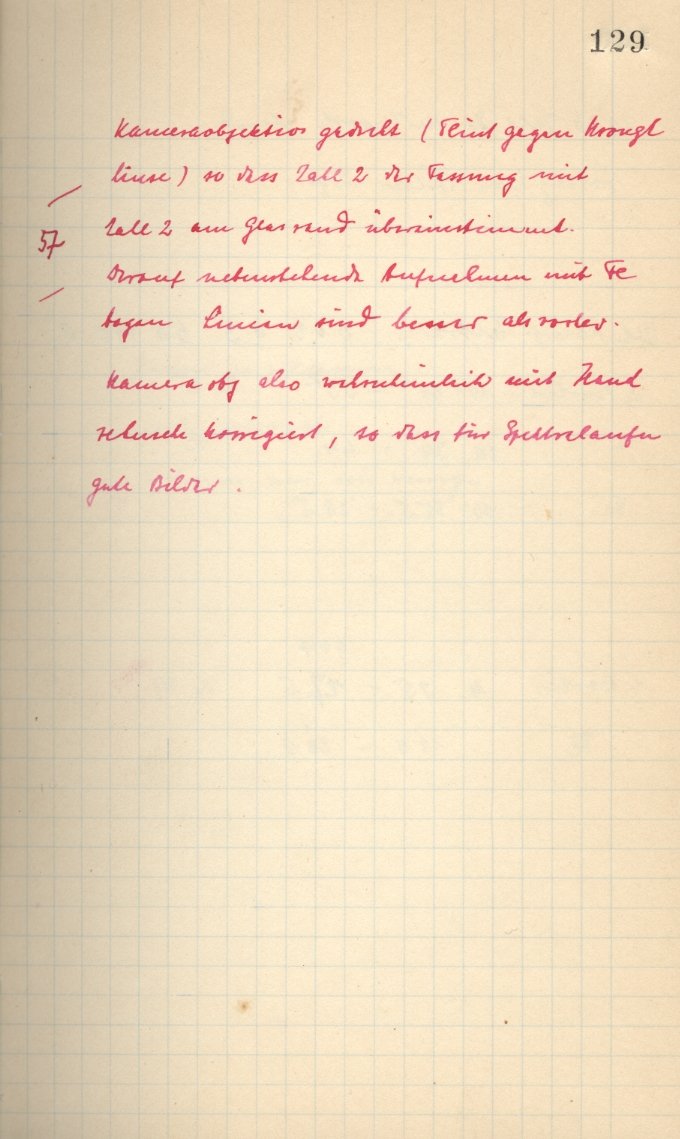 129
Kameraobjektiv gedreht (Flint gegen Krongl
linse) so dass Zahl 2 der Fassung mit
57
Zahl 2 am Glasrand übereinstimmt.
Darauf nebenstehende Aufnahmen mit Fe
bogen Linien sind besser als vorher.
Kamera obj also wahrscheinlich mit Hand
retusche korrigiert, so dass für Spektralaufn
gute Bilder.